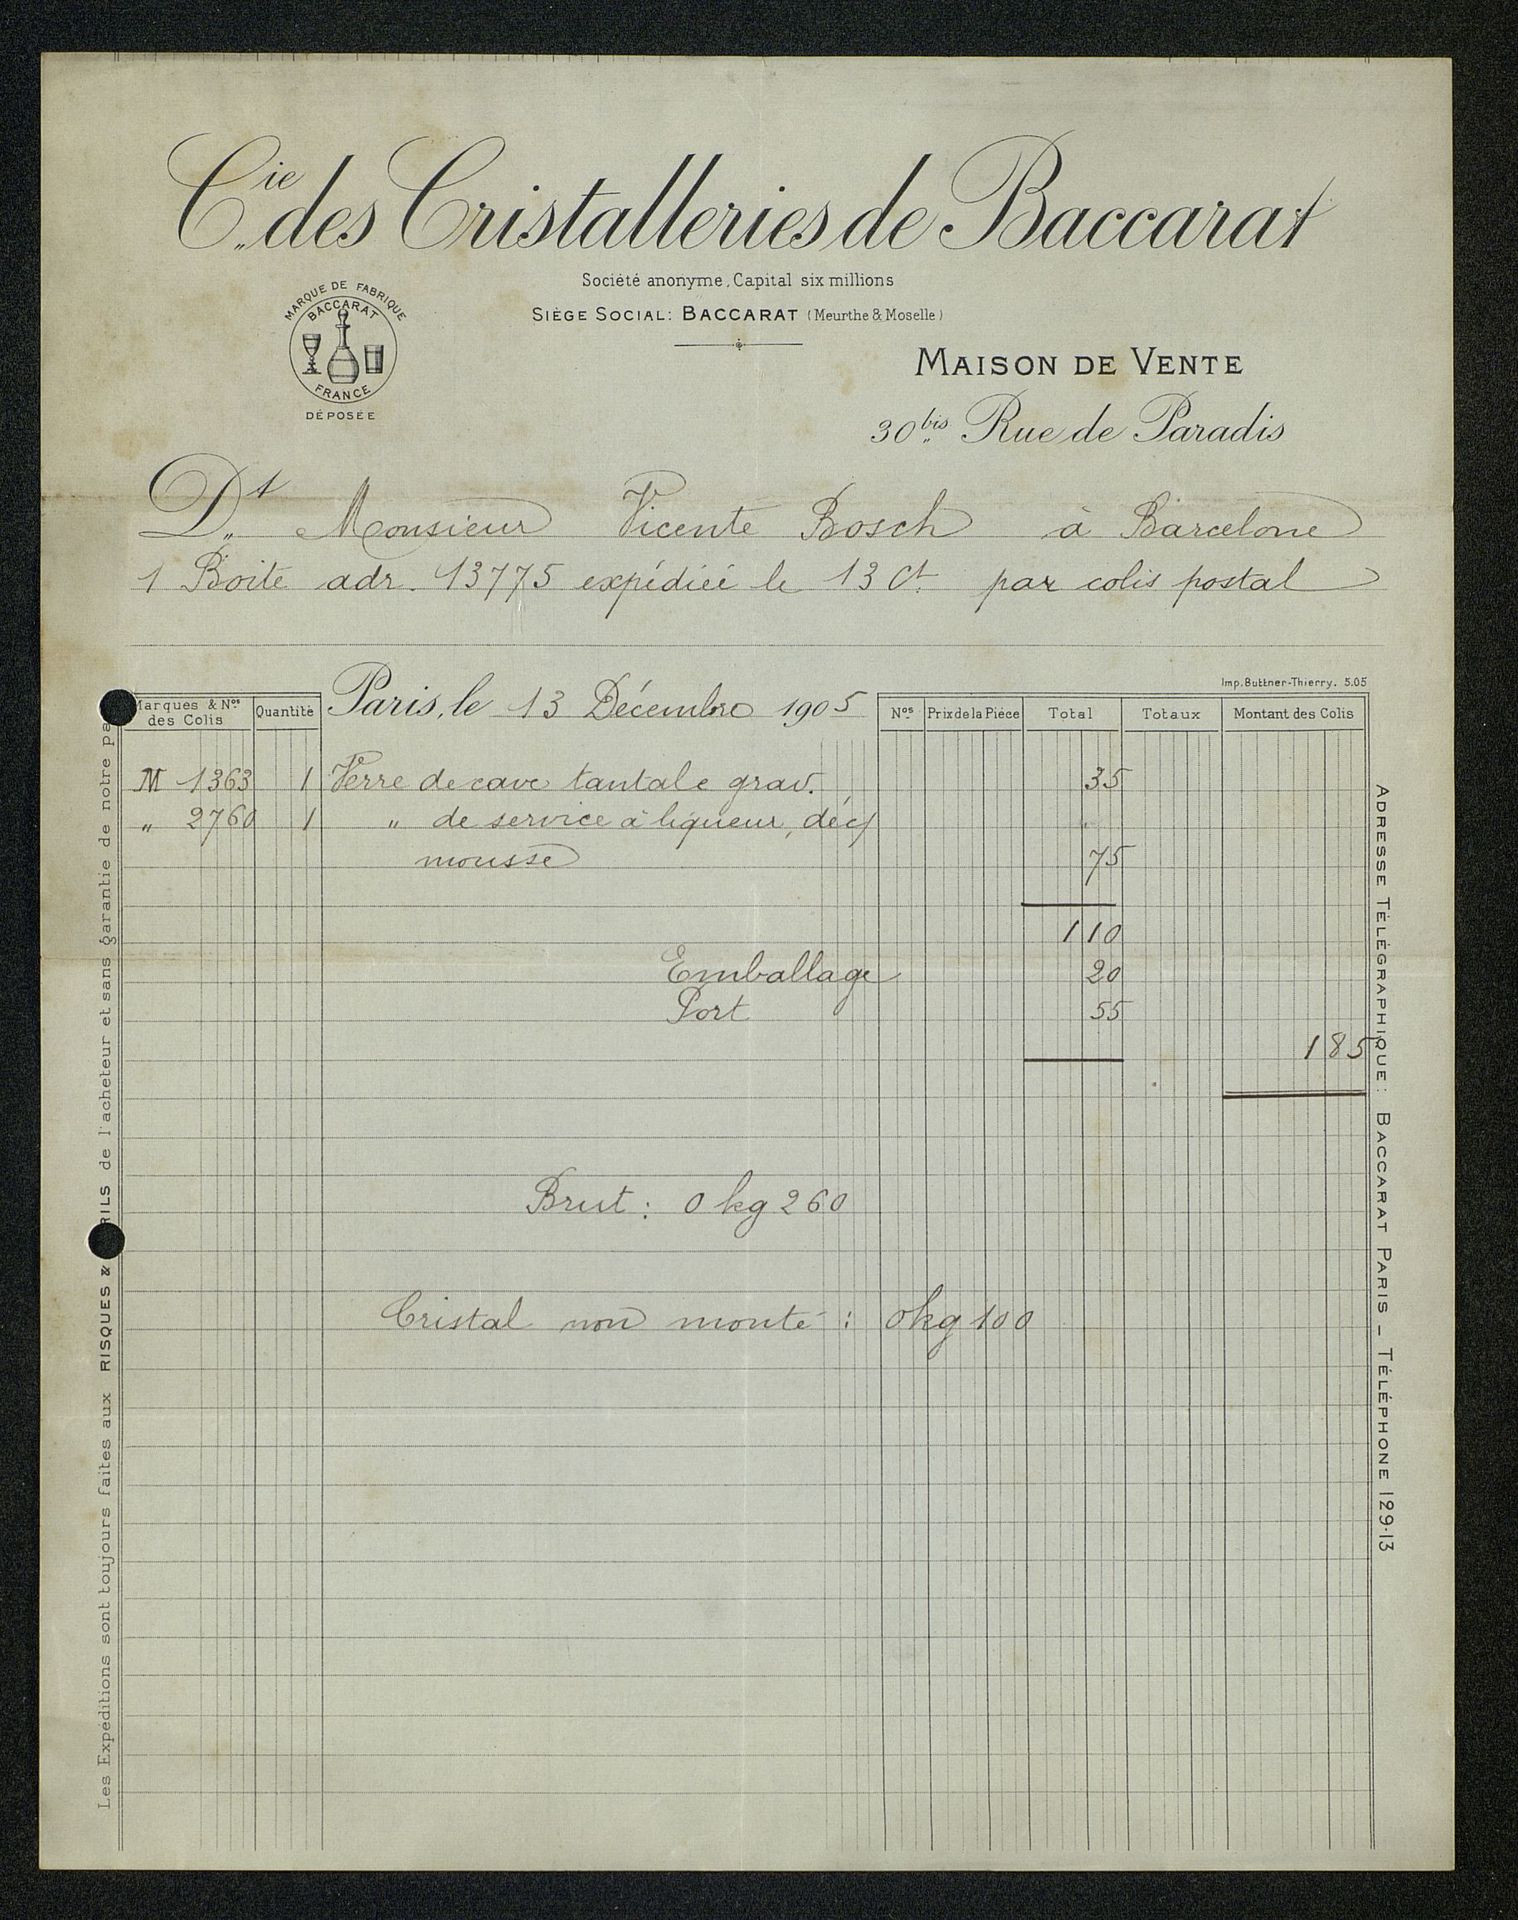 Cie des Cristalleries de Baccarat
Société anonyme, Capital six millions
SIÈGE SOCIAL: BACCARAT (Meurthe & Moselle)
MARQUE DE FABRIQUE
BACCARAT
FRANCE
DÉPOSÉE
MAISON DE VENTE
30bis Rue de Paradis
Dt Monsieur Vicente Bosch à Barcelone
1 Boite adr. 13775 expédiée le 13 Ct par colis postal
Imp. Buttner-Thierry. 5.05
Paris, le 13 Décembre 1905
Marques & Nos des Colis
Quantité
Nos
Prix de la Pièce
Total
Totaux
Montant des Colis
M 1363 1 Verre de cave tantale grav. 35
" 2760 1 " de service à liqueur, déc/
mousse 75
110
Emballage 20
Port 55
185
Brut : 0 kg 260
Cristal non monté : 0 kg 100
Les Expéditions sont toujours faites aux RISQUES & RILS de l'acheteur et sans garantie de notre pa
ADRESSE TÉLÉGRAPHIQUE: BACCARAT PARIS – TÉLÉPHONE 129-13